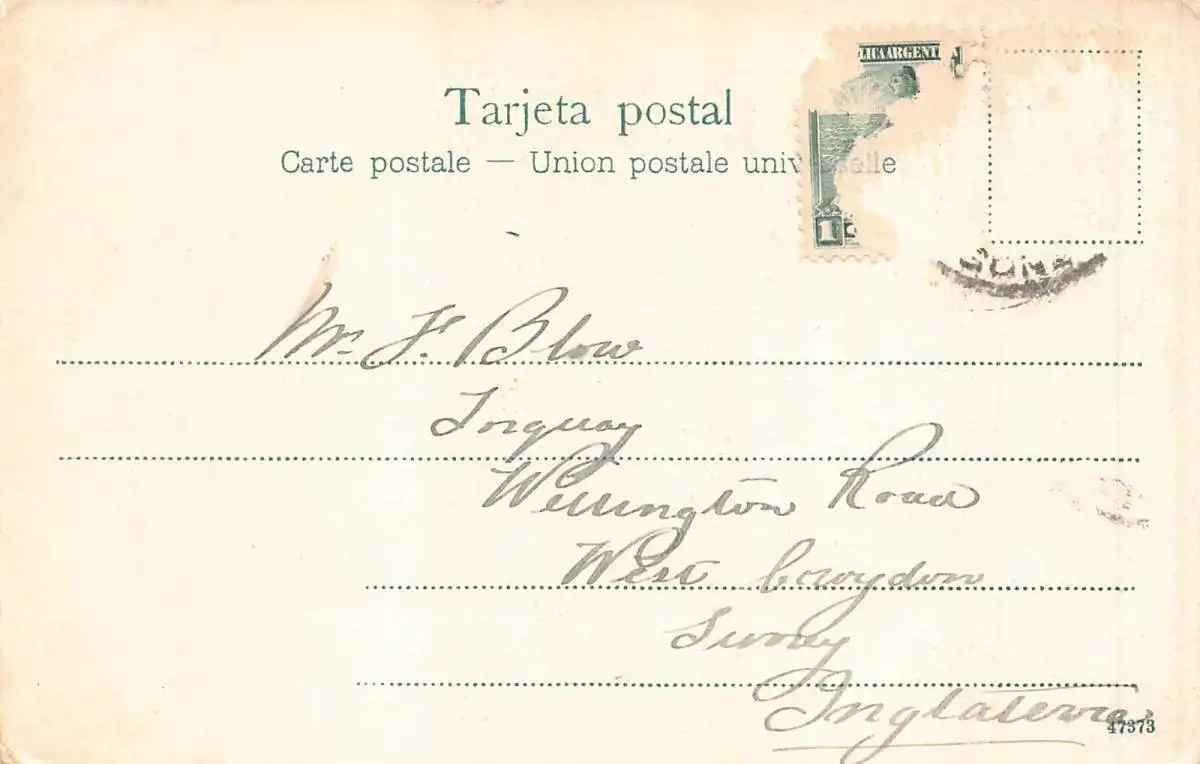 LICA ARGENT
Tarjeta postal
Carte postale — Union postale universelle
1
Mr. F. Blow
Torquay
Wellington Road
West Croydon
Surrey
Inglaterra
47373